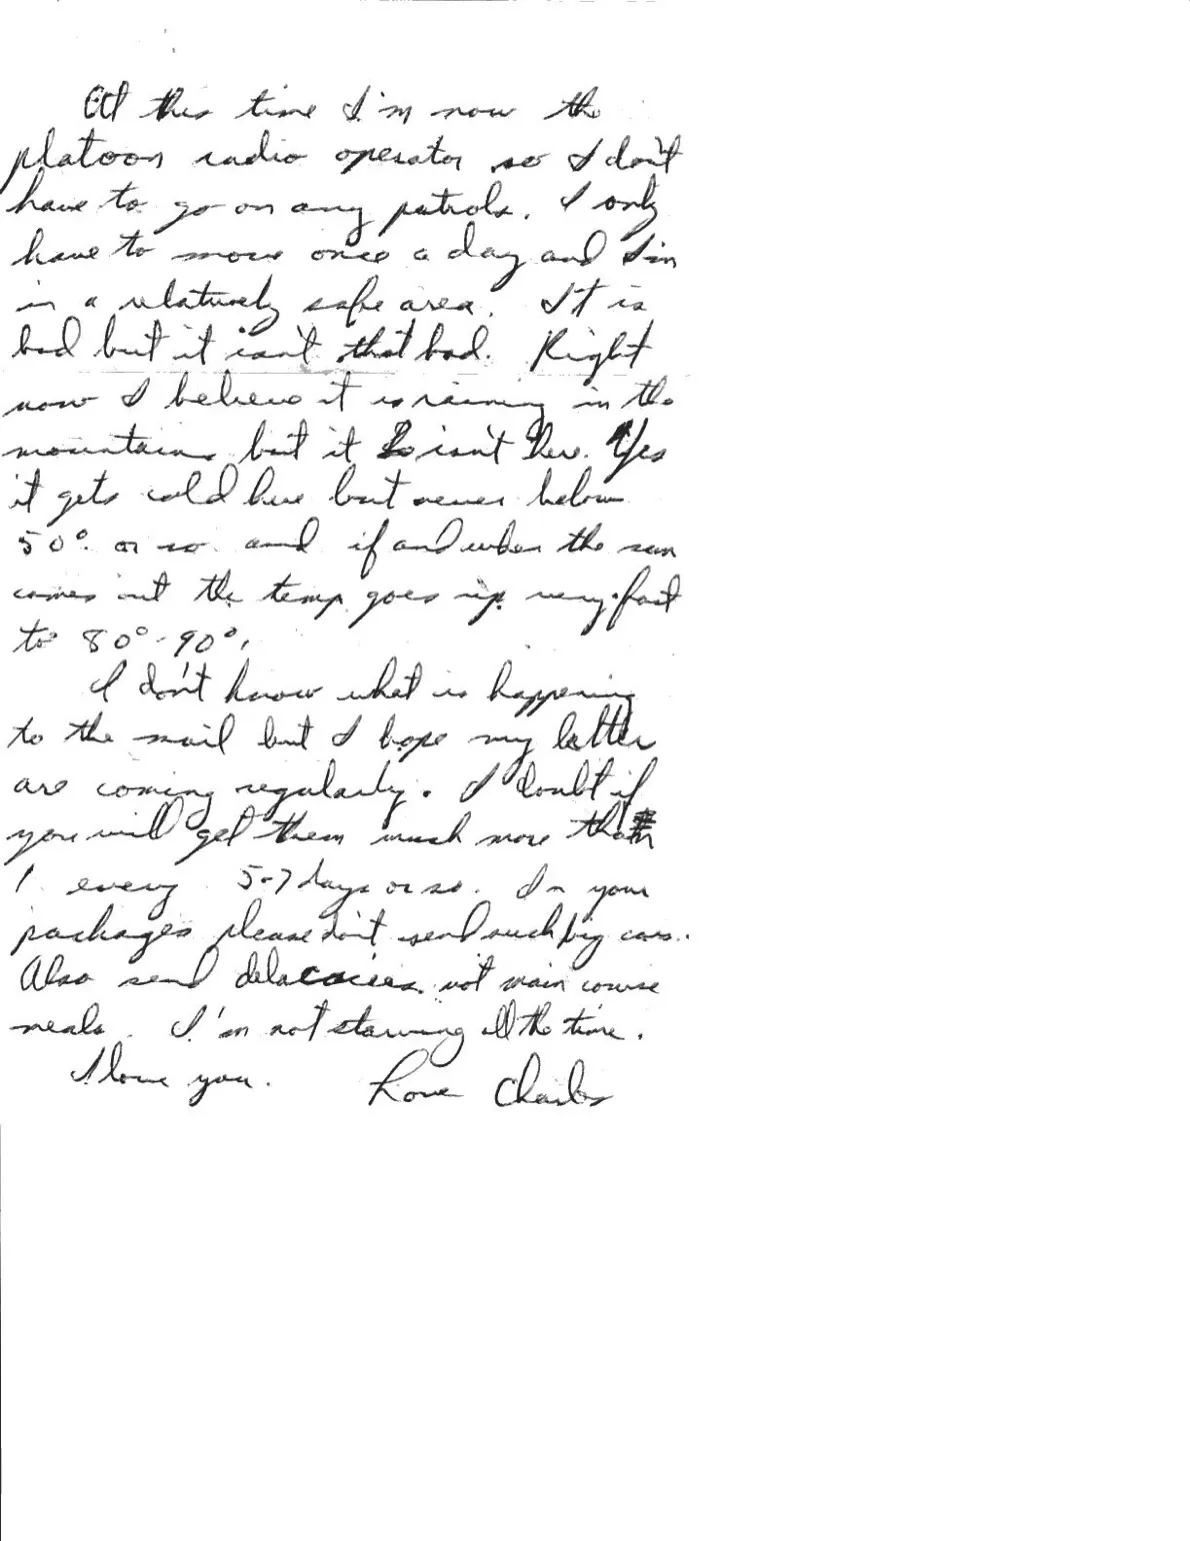 At this time I'm now the
platoon radio operator so I don't
have to go on any patrols. I only
have to move once a day and I'm
in a relatively safe area. It is
bad but it isn't that bad. Right
now I believe it is raining in the
mountains but it isn't here. Yes
it gets cold here but never below
50° or so and if and when the sun
comes out the temp goes up very fast
to 80°-90°.
I don't know what is happening
to the mail but I hope my letter
are coming regularly. I doubt if
you will get them much more than
1 every 5-7 days or so. In your
packages please don't send such big cans.
Also send delacacies not main course
meals. I'm not starving all the time.
I love you. Love Charles